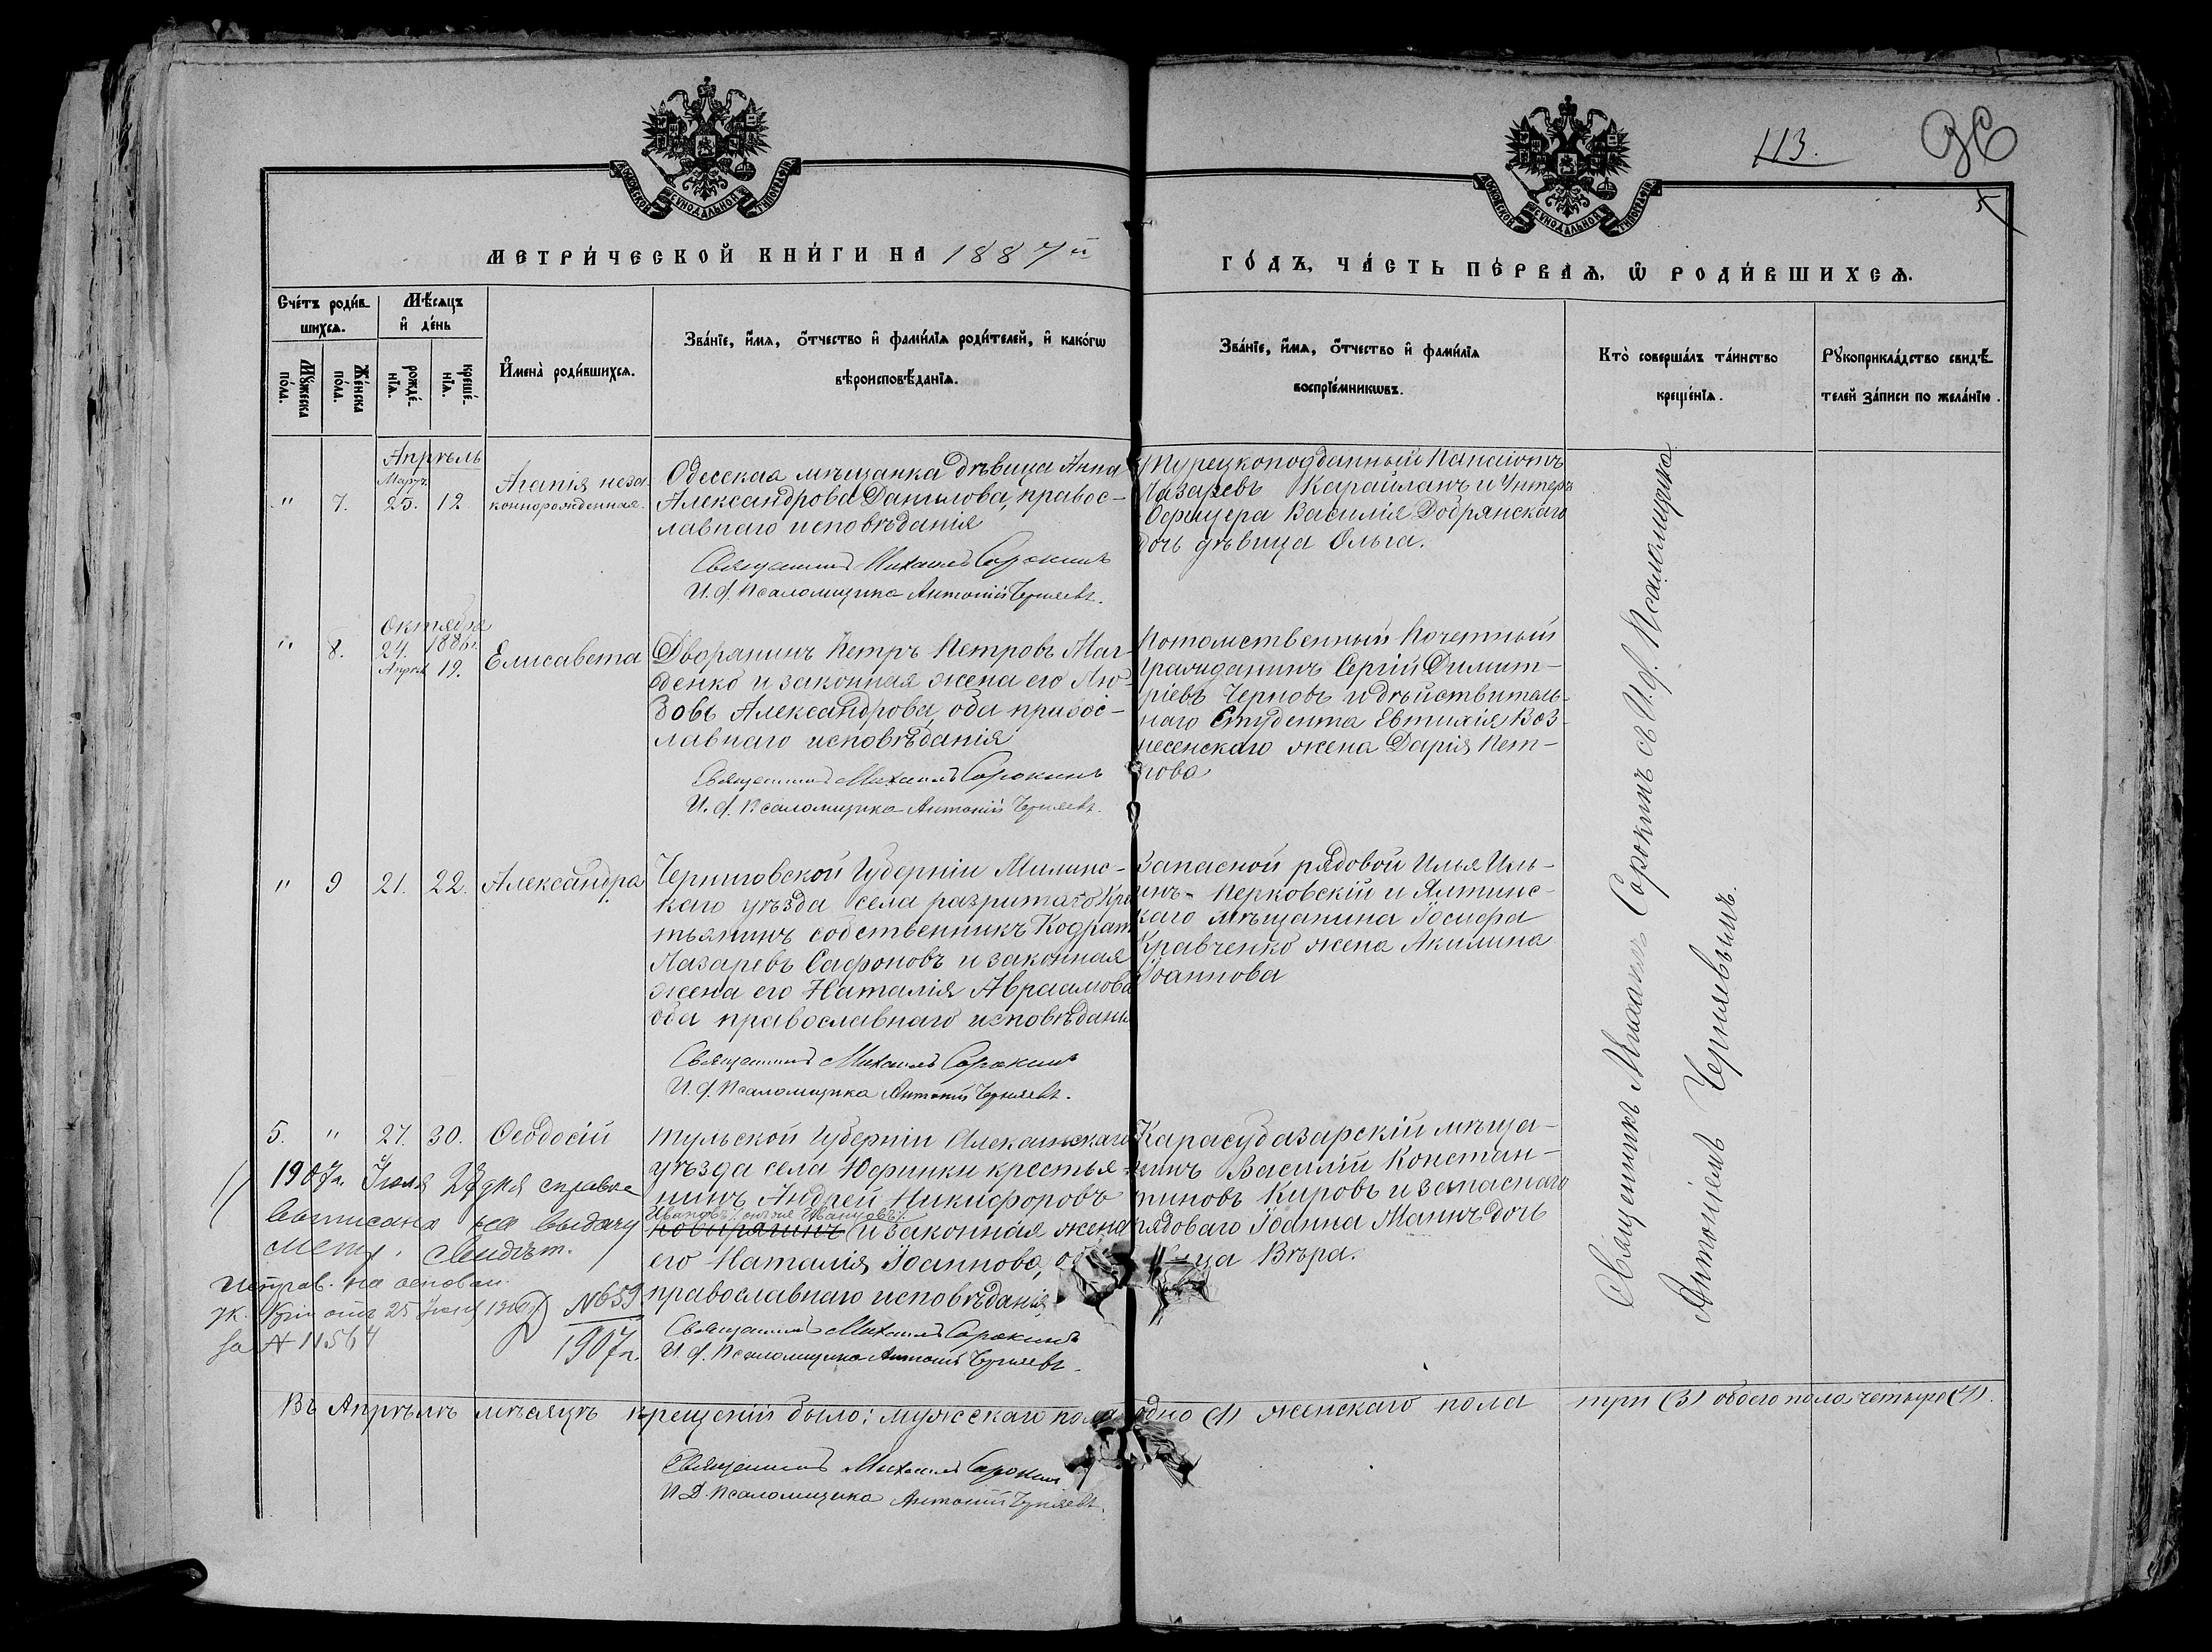 113.
МОСКОВСКОЙ СѴНОДАЛЬНОЙ ТИПОГРАФІИ
МОСКОВСКОЙ СѴНОДАЛЬНОЙ ТИПОГРАФІИ
МЕТРИ́ЧЕСКОЙ КНИ́ГИ НА 1887й
ГО́ДЪ, ЧА́СТЬ ПЕ́РВАѦ, Ѡ РОДИ́ВШИХСѦ.
Сче́тъ роди́в-
шихсѧ.
Мꙋ́жеска по́ла.
Же́нска по́ла.
Мѣ́сѧцъ
и҆ де́нь
рожде́-нїѧ.
креще́-нїѧ.
И҆мена̀ роди́вшихсѧ.
Зва́нїе, и҆́мѧ, ѻ҆́тчество и҆ фами́лїѧ роди́телей, и҆ како́гѡ
вѣроисповѣ́данїѧ.
Зва́нїе, и҆́мѧ, ѻ҆́тчество и҆ фами́лїѧ
воспрїе́мникѡвъ.
Кто̀ соверша́лъ та́инство
креще́нїѧ.
Рꙋкоприкла́дство свидѣ́-
телей за́писи по жела́нїю.
Апрѣль
Март.
" 7. 25. 12
Агапія неза-
коннорожденная.
Одесская мѣщанка дѣвица Анна
Александрова Данилова, правос-
лавнаго исповѣданія
Священникъ Михаилъ Сорокинъ
И. д. Псаломщика Антоній Черняевъ.
Турецкоподданный Панаіотъ
Лазаревъ Карайланъ и Унтеръ
Офицера Василія Добрянскаго
дочь дѣвица Ольга.
Октября
" 8. 24. 1886г.
Апрѣля 19.
Елисавета
Дворянинъ Петръ Петровъ Маг-
денко и законная жена его Лю-
бовь Александрова, оба правос-
лавнаго исповѣданія
Священникъ Михаилъ Сорокинъ
И. д. Псаломщика Антоній Черняевъ.
Потомственный Почетный
Гражданинъ Сергій Димит-
ріевъ Черновъ и дѣйствитель-
наго Студента Евтихія Воз-
несенскаго жена Дарія Пет-
рова
" 9 21. 22. Александра
Черниговской Губерніи Миминс-
каго уѣзда села разритаго Кре
тьянинъ собственникъ Кодрат
Лазаревъ Сафоновъ и законная
жена его Наталія Авраамова
оба православнаго исповѣдані
Священникъ Михаилъ Сорокинъ
И. д. Псаломщика Антоній Черняевъ.
Запасной рядовой Илья Иль-
инъ - Перковскій и Ялтинс-
каго мѣщанина Іосифа
Кравченко жена Акилина
Іоаннова
5. " 27. 30. Ѳеодосій
Тульской Губерніи Алексинскаго
уѣзда села Юфинки крестья-
нинъ Андрей Никифоровъ
и законная жена
его Наталія Іоаннова,
православнаго исповѣданія
Священникъ Михаилъ Сорокинъ
И. д. Псаломщика Антоній Черняевъ.
Карасубазарскій мѣща-
нинъ Василій Констан-
тиновъ Кировъ и запаснаго
рядоваго Іоанна Манчъ дочь
ца Вѣра.
1907г. Іюля 28 дня справка
выписана на выдачу
метр. свидѣт.
Исправ. на основан.
ук. отъ 25 1907
за № 11564
№ 659
1907г.
Священникъ Михаилъ Сорокинъ съ И. д. Псаломщика
Антоніемъ Черняевымъ.
Въ Апрѣлѣ мѣсяцѣ крещеній было: мужескаго пола одно (1) женскаго пола три (3) обоего пола четыре (4).
Священникъ Михаилъ Сорокинъ
И. Д. Псаломщика Антоній Черняевъ.